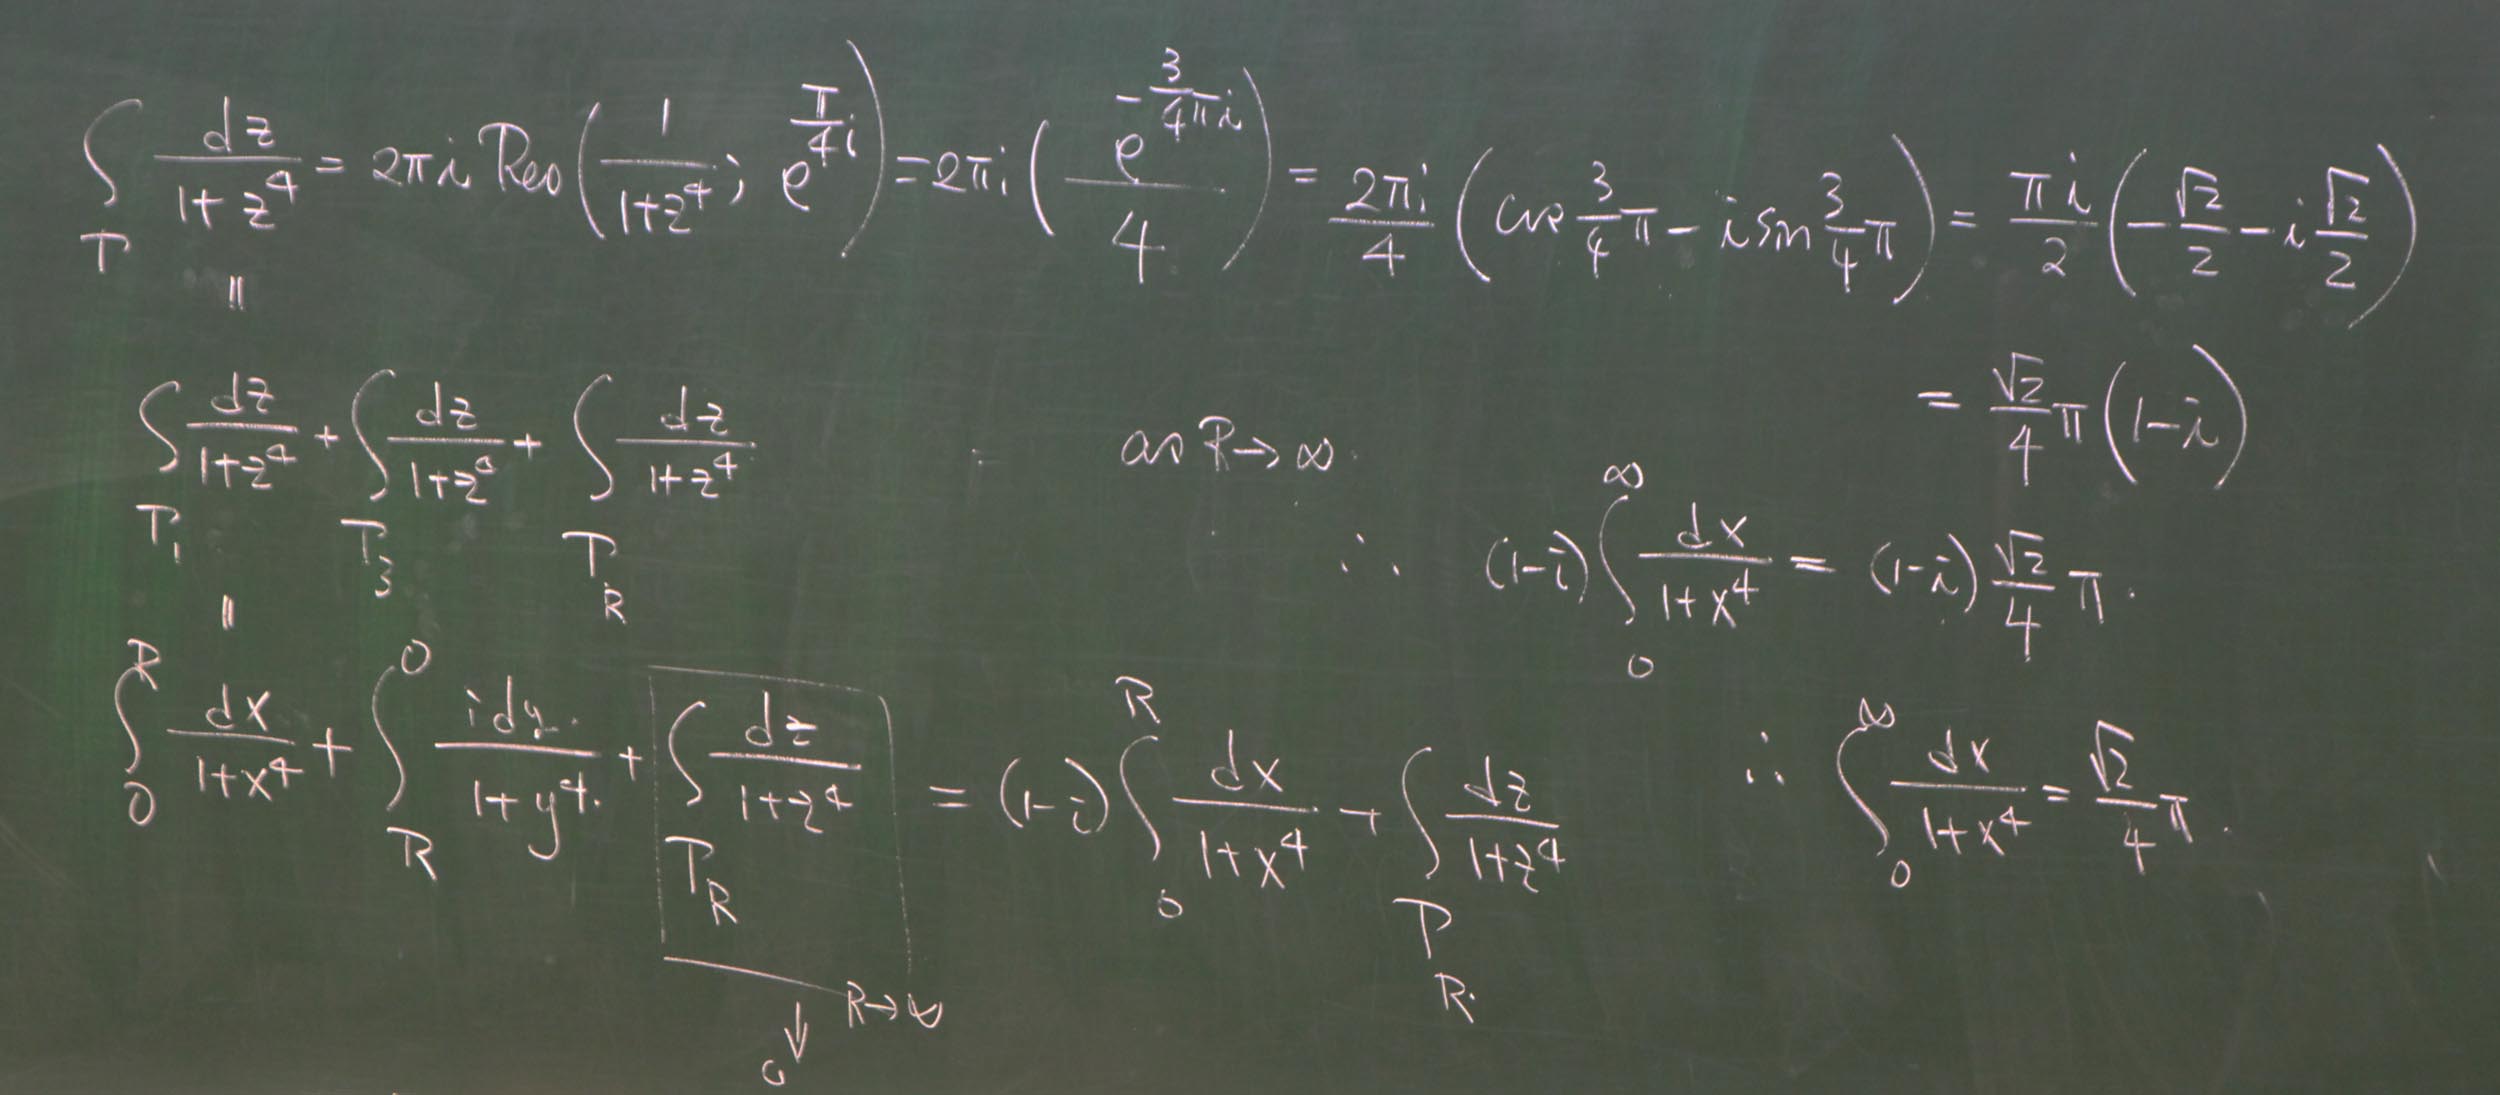 ∫_Γ dz/(1+z⁴) = 2πi Res(1/(1+z⁴); e^{π/4 i}) = 2πi (e^{-3/4 πi}/4) = 2πi/4 (cos 3/4 π - i sin 3/4 π) = πi/2 (-√2/2 - i √2/2)
॥
= √2/4 π (1-i)
∫_{Γ₁} dz/(1+z⁴) + ∫_{Γ₃} dz/(1+z⁴) + ∫_{Γ_R} dz/(1+z⁴)
as R→∞.
॥
∴ (1-i) ∫_0^∞ dx/(1+x⁴) = (1-i) √2/4 π.
∫_0^R dx/(1+x⁴) + ∫_R^0 i dy/(1+y⁴) + ∫_{Γ_R} dz/(1+z⁴) = (1-i) ∫_0^R dx/(1+x⁴) + ∫_{Γ_R} dz/(1+z⁴)
↓ R→∞
0
∴ ∫_0^∞ dx/(1+x⁴) = √2/4 π.